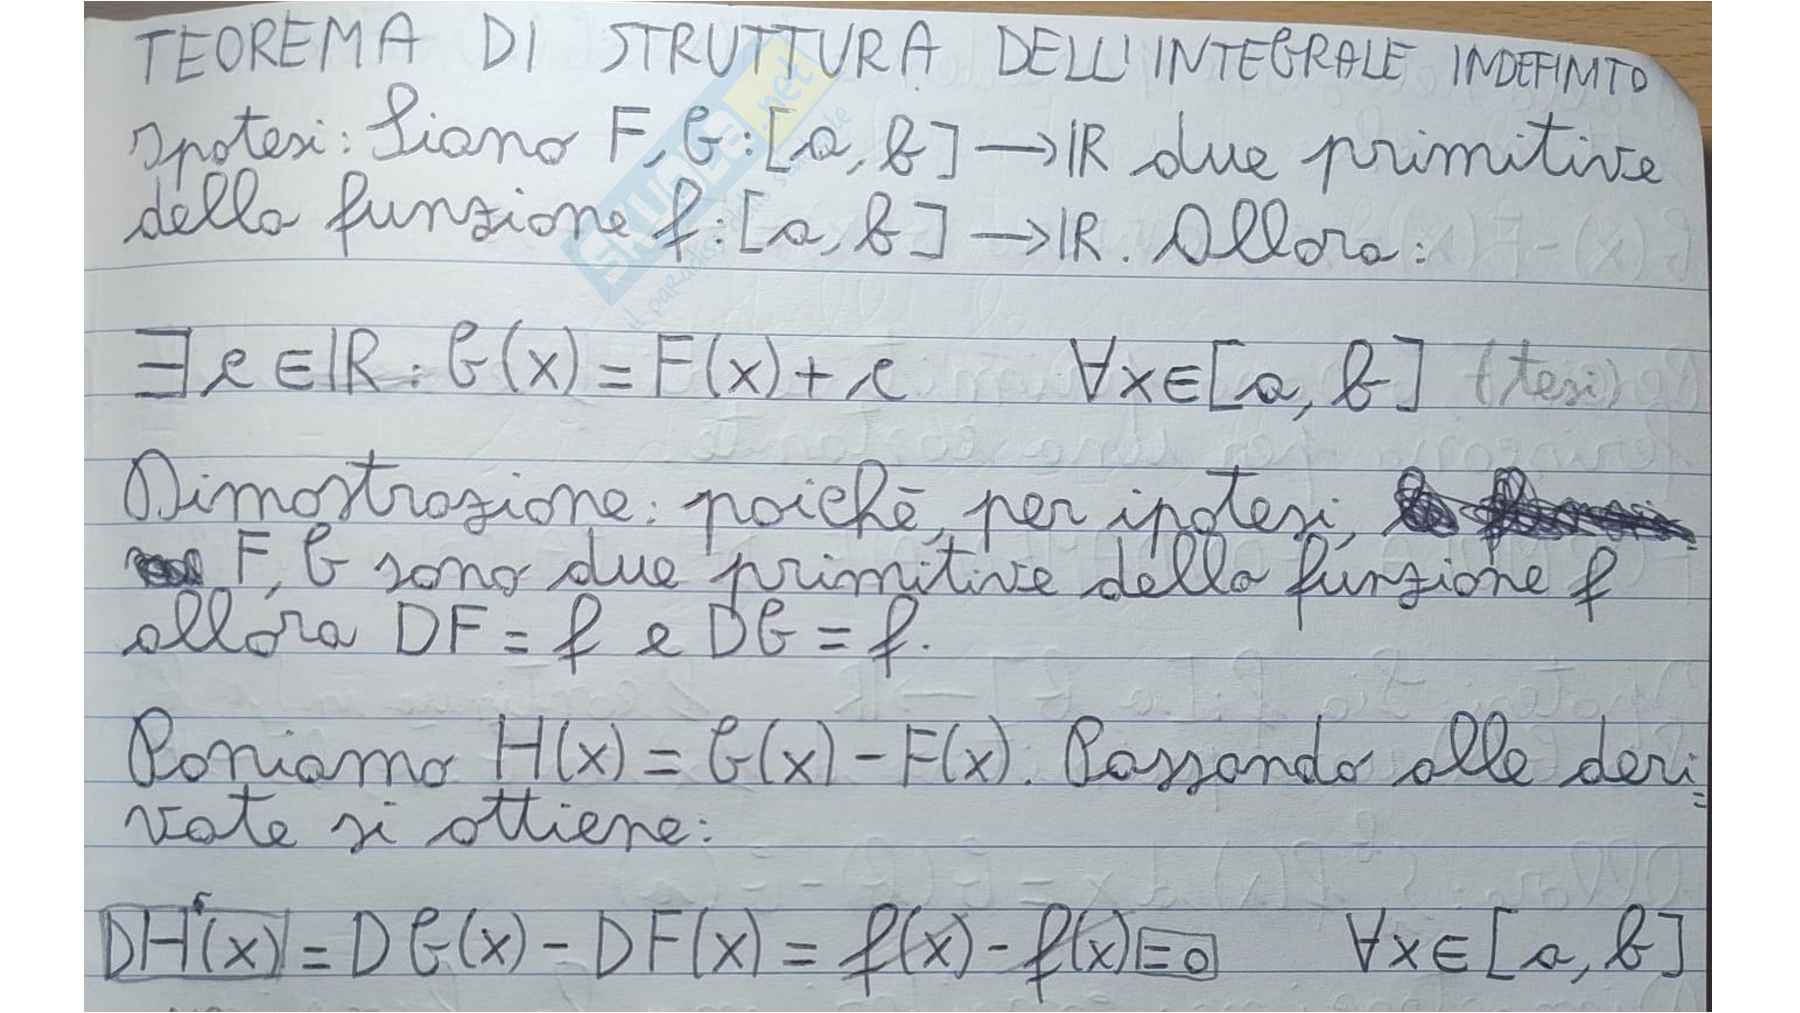 TEOREMA DI STRUTTURA DELL'INTEGRALE INDEFINITO
Ipotesi: Siano F, G: [a, b] → ℝ due primitive
della funzione f: [a, b] → ℝ. Allora:
∃ c ∈ ℝ : G(x) = F(x) + c ∀x ∈ [a, b] (tesi)
Dimostrazione: poichè, per ipotesi,
F, G sono due primitive della funzione f
allora DF = f e DG = f.
Poniamo H(x) = G(x) - F(x). Passando alle deri=
vate si ottiene:
DH(x) = DG(x) - DF(x) = f(x) - f(x) = 0 ∀x ∈ [a, b]
SKUOLA.net
il paradiso dello studente